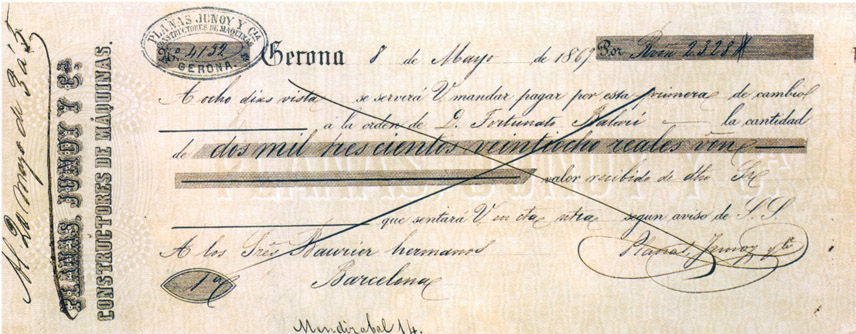 PLANAS JUNOY Y Cía.
CONSTRUCTORES DE MAQUINAS
No. 4132
GERONA.
Gerona 8 de Mayo de 1867 Por Rvón 2328
A ocho dias vista se servirá V. mandar pagar por esta primera de cambio
á la orden de D. Fortunato la cantidad
de dos mil tres cientos veintiocho reales vón
valor recibido de dho Sr
que sentará V. en cta ntra segun aviso de S.S.
A los Sres hermanos
Planas Junoy y Ca
Barcelona
1a
Mendizabal 14.
PLANAS, JUNOY Y Ca
CONSTRUCTORES DE MÁQUINAS.